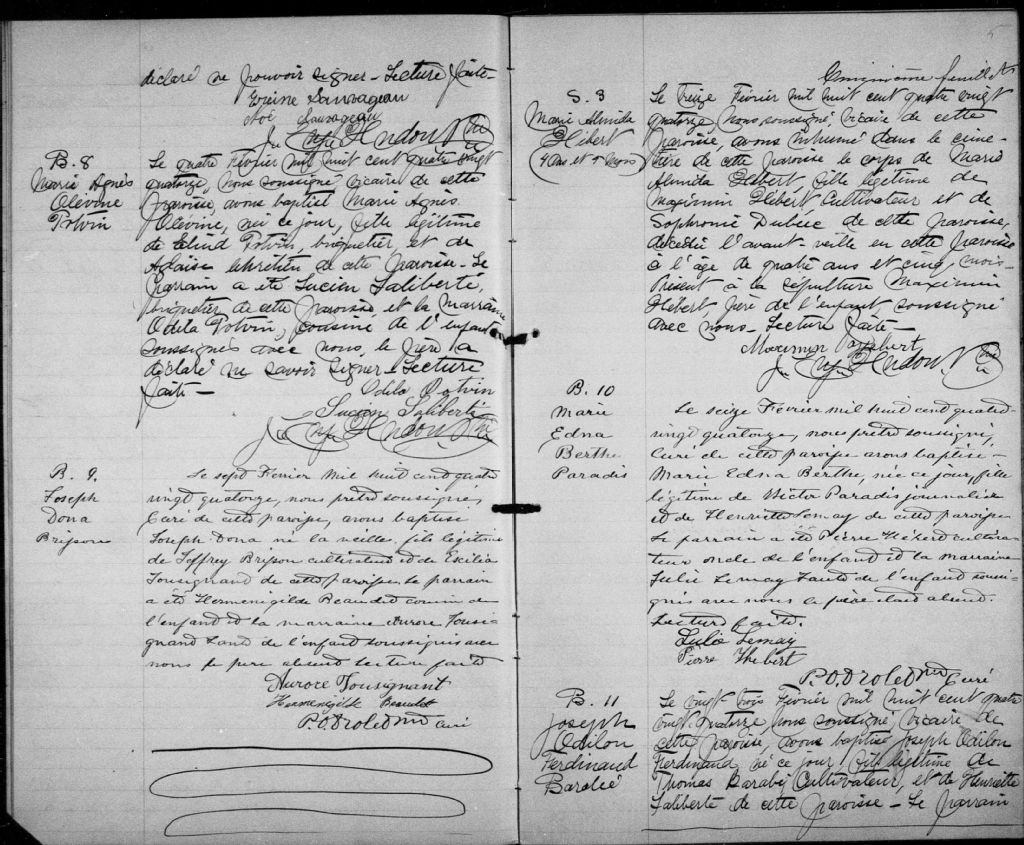 déclaré ne pouvoir signer - Lecture faite -
Sauvageau
Noé Sauvageau
B. 8
Marie Agnès
Olévine
Potvin
Le quatre Février mil huit cent quatre vingt
quatorze, nous soussigné vicaire de cette
paroisse, avons baptisé Marie Agnès
Olévine, née ce jour, fille légitime
de Potvin, briquetier, et de
de cette paroisse - Le
parrain a été Lucien Laliberté,
briquetier de cette paroisse et la marraine
Odila Potvin, cousine de l'enfant
soussignés avec nous, le père a
déclaré ne savoir signer - Lecture
faite -
Odila Potvin
Lucien Laliberté
B. 9.
Joseph
Dona
Brisson
Le sept Février mil huit cent quatre
vingt quatorze, nous prêtre soussigné,
Curé de cette paroisse, avons baptisé
Joseph Dona né la veille, fils légitime
de Jeffrey Brisson cultivateur et de Exilia
Tousignand de cette paroisse, le parrain
a été Herménigilde Beaudet cousin de
l'enfant et la marraine Aurore Tousi-
gnand tante de l'enfant soussignés avec
nous le père absent Lecture faite
Aurore Tousignant
Herménigilde Beaudet
P.O. Drolet ptre curé
5
Cinquième feuillet
S. 3
Marie Almida
Hébert
(4 Ans et 5 mois)
Le treize Février mil huit cent quatre vingt
quatorze, nous soussigné, vicaire de cette
paroisse, avons inhumé dans le cime-
tière de cette paroisse le corps de Marie
Almida Hébert, fille légitime de
Maximin Hébert Cultivateur et de
Sophronie Dubuc de cette paroisse,
décédée l'avant-veille en cette paroisse
à l'âge de quatre ans et cinq mois -
Présent à la sépulture Maximin
Hébert, père de l'enfant, soussigné
avec nous - Lecture faite -
Maximin Hébert
B. 10
Marie
Edna
Berthe
Paradis
Le seize Février mil huit cent quatre-
vingt quatorze, nous prêtre soussigné,
Curé de cette paroisse avons baptisé -
Marie Edna Berthe, née ce jour, fille
légitime de Victor Paradis journalier
et de Henriette Lemay de cette paroisse
Le parrain a été Pierre Hébert cultiva-
teur oncle de l'enfant et la marraine
Julie Lemay tante de l'enfant soussi-
gnés avec nous le père étant absent.
Lecture faite.
Julie Lemay
Pierre Hebert
P.O. Drolet ptre Curé
B. 11
Joseph
Odilon
Ferdinand
Barabé
Le vingt trois Février mil huit cent quatre
vingt quatorze, nous soussigné, vicaire de
cette paroisse, avons baptisé Joseph Odilon
Ferdinand né ce jour, fils légitime de
Thomas Barabé Cultivateur, et de Henriette
Laliberté de cette paroisse - Le parrain